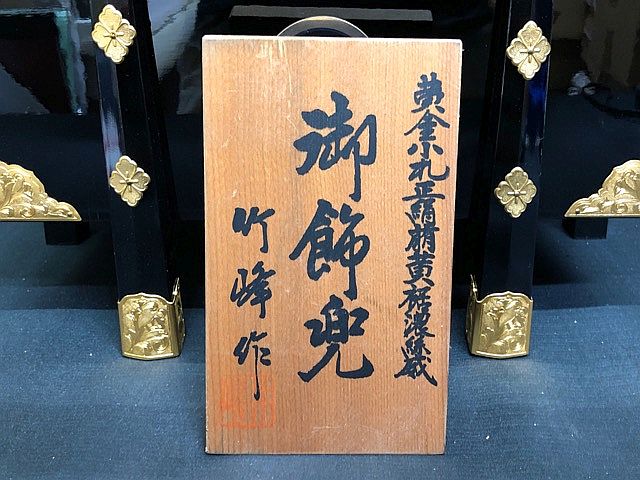 黄金小札正絹萌黄裾濃縅
御飾兜
竹峰作